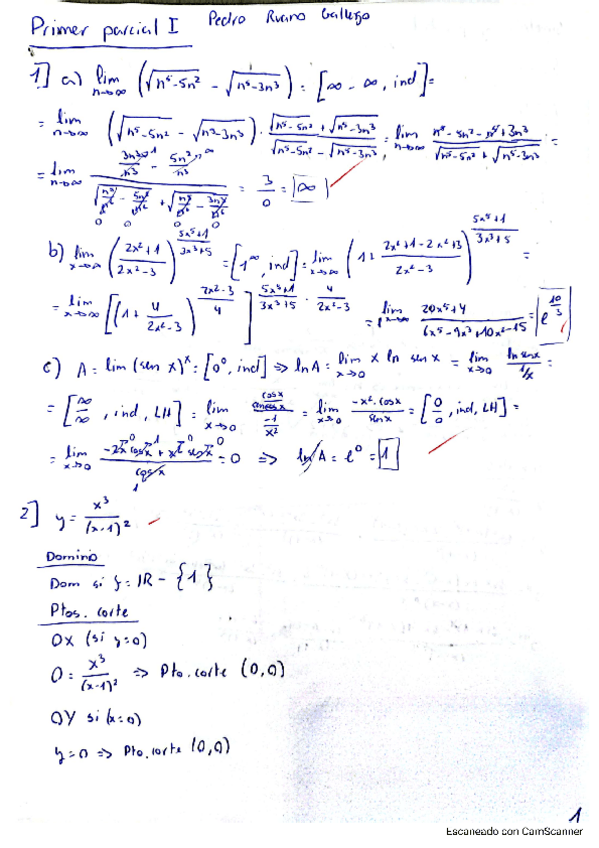 Primer parcial I Pedro Ruano Gallego
1] a) lim n→∞ (√(n⁵-5n²) - √(n⁵-3n³)) = [∞ - ∞, ind] =
= lim n→∞ (√(n⁵-5n²) - √(n⁵-3n³)) · (√(n⁵-5n²) + √(n⁵-3n³))/(√(n⁵-5n²) - √(n⁵-3n³)) = lim n→∞ (n⁵-5n²-n⁵+3n³)/(√(n⁵-5n²) + √(n⁵-3n³)) =
= lim n→∞ (3n³/n³ - 5n²/n³)/(√(n⁵/n⁶ - 5n²/n⁶) + √(n⁵/n⁶ - 3n³/n⁶)) = 3/0 = ∞
b) lim x→∞ ((2x²+1)/(2x²-3))^((5x⁵+1)/(3x³+5)) = [1^∞, ind] = lim x→∞ (1+ (2x²+1-2x²+3)/(2x²-3))^((5x⁵+1)/(3x³+5)) =
= lim x→∞ [(1+ 4/(2x²-3))^((2x²-3)/4)]^((5x⁵+1)/(3x³+5) · 4/(2x²-3)) = e^(lim x→∞ (20x⁵+4)/(6x⁵-9x³+10x²-15)) = e^(10/3)
c) A = lim (sen x)^x = [0⁰, ind] ⇒ ln A = lim x→0 x ln sen x = lim x→0 (ln sen x)/(1/x) =
= [∞/∞, ind, LH] = lim x→0 (cos x/sen x)/(-1/x²) = lim x→0 (-x²·cos x)/(sen x) = [0/0, ind, LH] =
= lim x→0 (-2x cos x + x² sen x)/(cos x) = 0 ⇒ ln A = e⁰ = 1
2] y = x³/(x-1)²
Dominio
Dom si y = IR - {1}
Ptos. corte
OX (si y=0)
0 = x³/(x-1)² ⇒ Pto. corte (0,0)
OY si (x=0)
y=0 ⇒ Pto. corte (0,0)
1
Escaneado con CamScanner